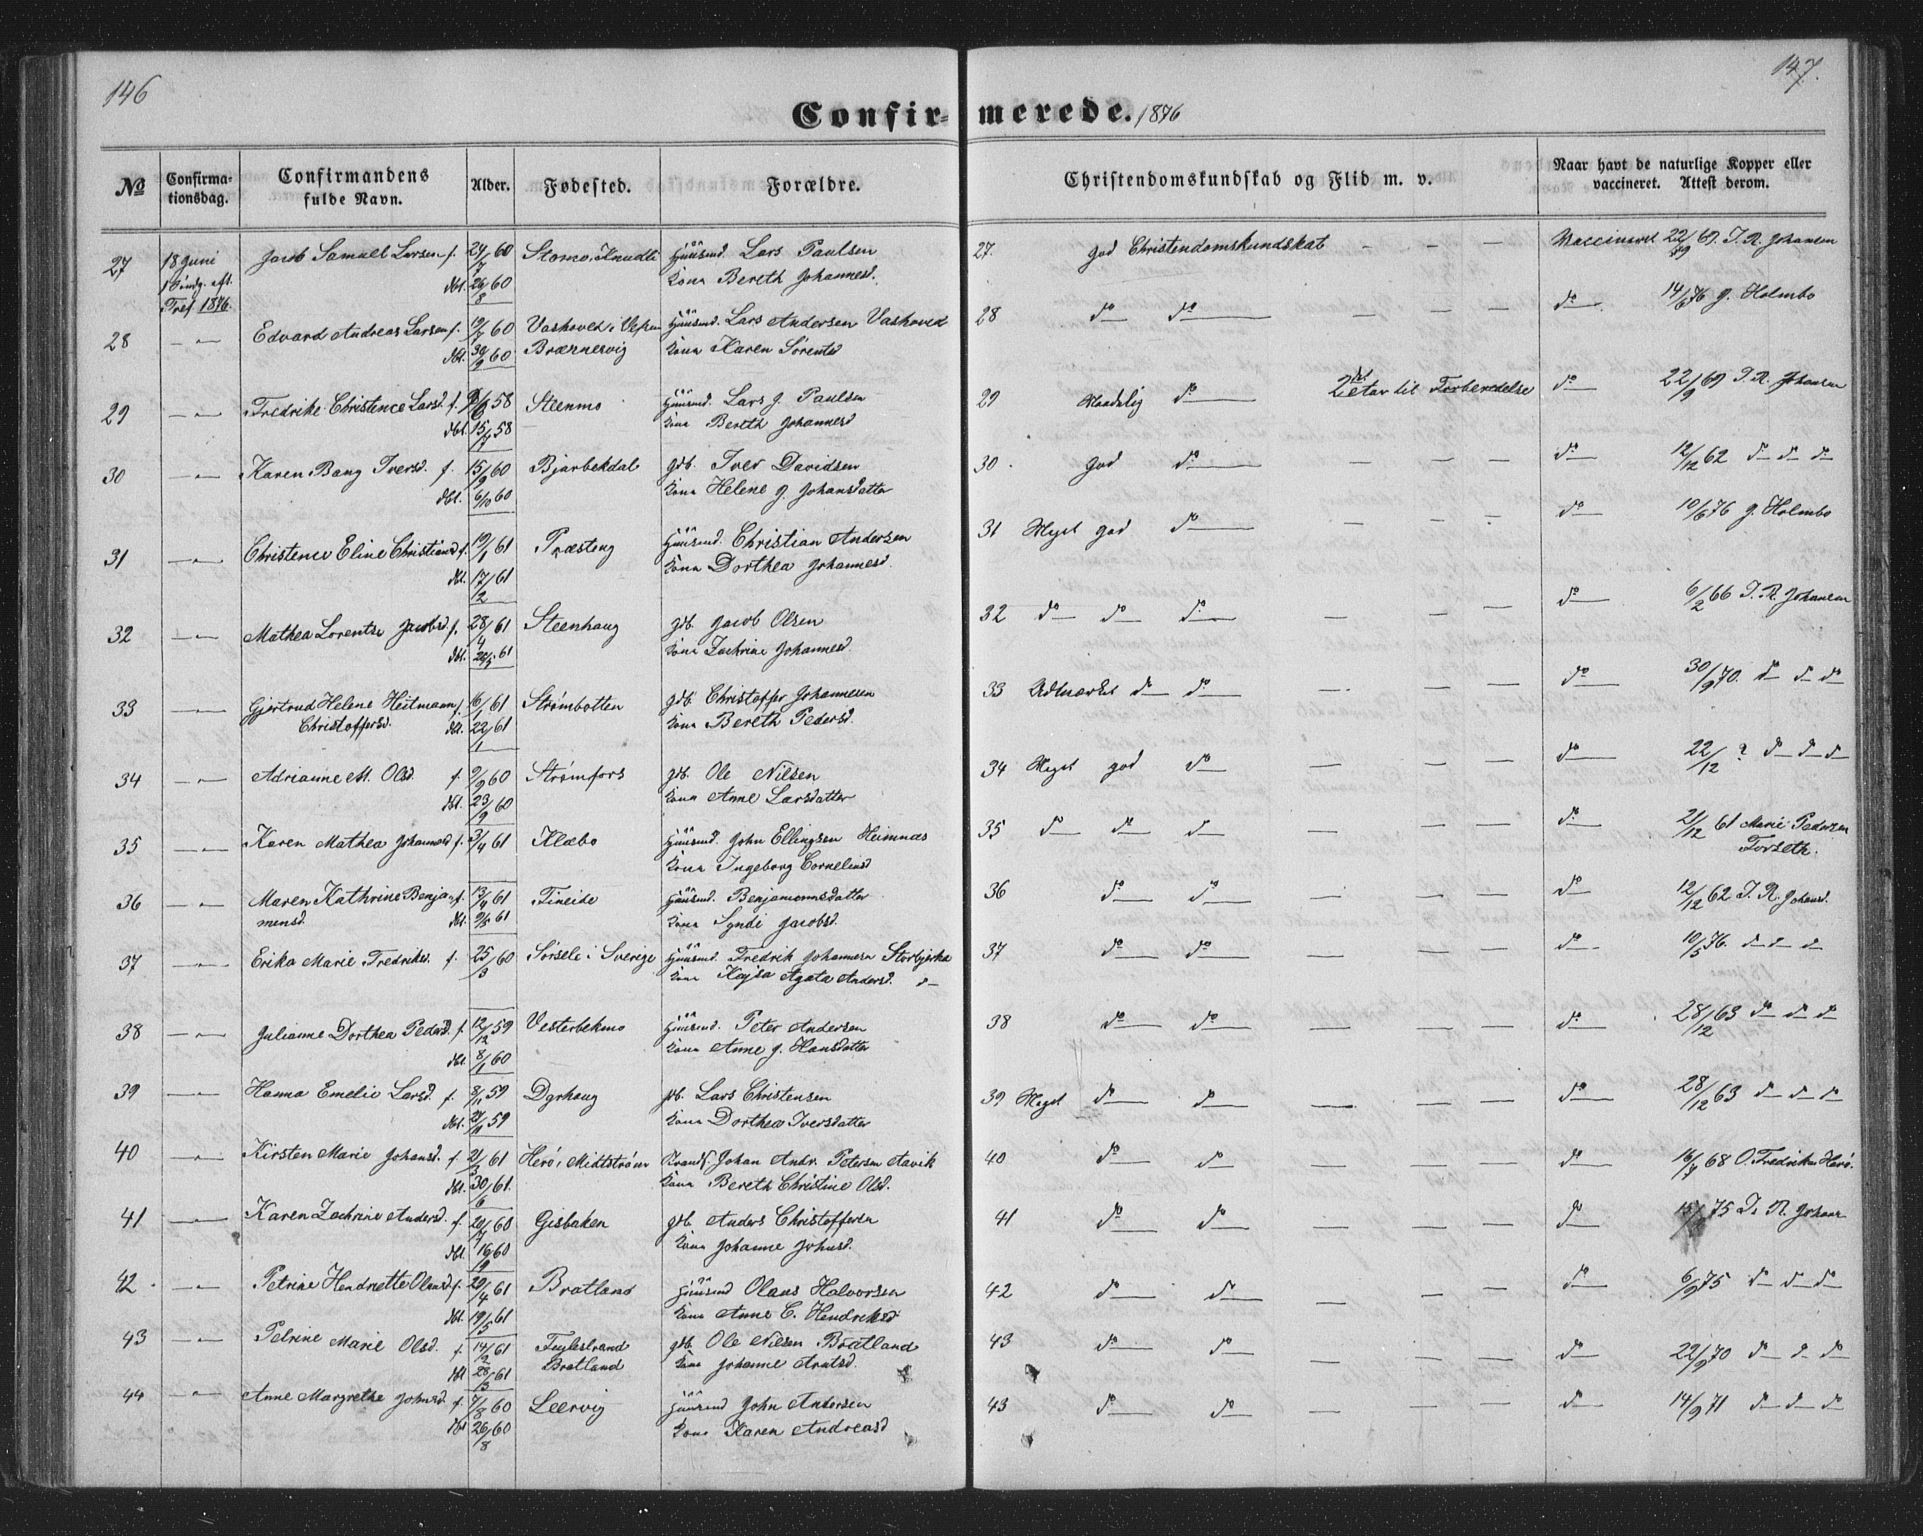 146
147.
Confir- merede. 1876
No
Confirma-
tionsdag.
Confirmandens
fulde Navn.
Alder.
Fødested.
Forældre.
Christendomskundskab og Flid m. v.
Naar havt de naturlige Kopper eller
vaccineret. Attest derom.
27 18 Juni Jacob Samuel Larsen f. 24/7 60 Huusmd. Lars Paulsen 27. god Christendomskundskab — — — Vaccineret 22/9 69. J. R. Johansen
dbt. 26/8 60 Kone Bereth Johannesd.
Tref 1876.
28 —"— Edvard Andreas Larsen f. 19/7 60 Vashoved i Vefsen Huusmd. Lars Andersen Vashoved 28 do do — — — do 14/6 76 J. Holmbo
dbt. 30/9 60 Kone Karen Sørensd
29 —"— Fredrike Christence Larsd. f. 58 Steenmo Huusmd. Lars J. Paulsen 29 Maadelig do til Forberedelse do 22/9 69 J. R. Johansen
dbt. 15/7 58 Kone Bereth Johannesd
30 —"— Karen Bang Iversd. f. 15/9 60 Bjarbekdal gdb. Iver Davidsen 30. god do — — — do 12/12 62 do do do
dbt. 6/10 60 Kone Helene J. Johansdatter
31 —"— Christence Eline Christiansd f. 19/1 61 Præsteng Huusmd. Christian Andersen 31 Meget god do — — — do 10/6 76 J. Holmbo
dbt. 17/2 61 Kone Dorthea Johannesd.
32 —"— Mathea Lorentse Jacobsd f. 28/4 61 Steenhaug gdb. Jacob Olsen 32 do do do — — — do 6/2 66 J. R. Johansen
dbt. 61 Kone Zachrine Johannesd.
33 —"— Gjertrud Helene Heitmann f. 6/1 61 Strømbotten gdb. Christoffer Johannesen 33 Udmærket do do — — — do 30/9 70. do do do
Christoffersd. dbt. 22/1 61 Kone Bereth Pedersd.
34 —"— Adrianne M. Olsd. f. 9/9 60 Strømfors gdb. Ole Nilsen 34 Meget god do — — — do 22/12 ? do do do
dbt. 23/9 60 Kone Anne Larsdatter
35 —"— Karen Mathea Johannesd f. 3/4 61 Klæbo Huusmd. John Ellingsen Heimnæs 35 do do do — — — do 21/12 61 Marie Pedersen
Kone Ingeborg Cornelinsd Forseth.
36 —"— Maren Kathrine Benja- f. 13/4 61 Fineide Huusmd. Benjaminnsdatter 36 do do — — — do 12/12 62 J. R. Johansd.
mensd. dbt. 9/5 61 Kone Syndi Jacobsd.
37 —"— Erika Marie Fredriksd. f. 25/3 60 Sorsele i Sverige Huusmd. Fredrik Johannesn Storbjerka 37 do do — — — do 10/5 76. do do do
Kone Kajsa Agata Andersd. do
38 —"— Julianne Dorthea Pedersd. f. 12/12 59 Vesterbekmo Huusmd. Peter Andersen 38 do do — — — do 28/12 63 do do do
dbt. 8/1 60 Kone Anne J. Hansdatter
39 —"— Hanna Emelie Larsd. f. 8/11 59 Dyrhaug gdb. Lars Christensen 39 Meget do do — — — do 28/12 63 do do do
dbt. 59 Kone Dorthea Iversdatter
40 —"— Kirsten Marie Johansd. f. 21/3 61 Herø, Midtstrøm Johan Andr. Petersen Aavik 40 do do — — — do 16/7 68 O. Fredriksen Herø.
dbt. 30/6 61. Kone Bereth Christine Olsd.
41 —"— Karen Zachrine Andersd. f. 20/7 60 Gisbaken gdb. Anders Christoffersen 41 do do — — — do 75 J. R. Johans
dbt. 16/9 60 Kone Johanne Johnsd.
42 —"— Petrine Hendriette Olausd. f. 29/4 61 Bratland Huusmd Olaus Halvorsen 42 do do — — — do 6/9 75 do do do
dbt. 19/5 61 Kone Anne C. Hendriksd
43 —"— Petrine Marie Olsd. f. 14/2 61 Fuglestrand gdb. Ole Nilsen Bratland 43 do do — — — do 22/9 70 do do do
dbt. 28/3 61 Bratland Kone Johanne Arntsd.
44 —"— Anne Margrethe Johnsd. f. 7/8 60 Leervig Huusmd John Andersen 43 do do — — — do 14/9 71 do do do
dbt 26/8 60 Kone Karen Andreasd